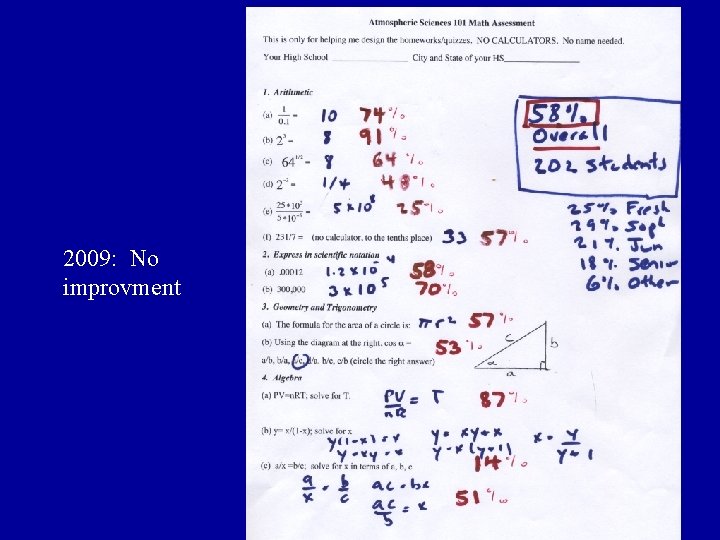 Atmospheric Sciences 101 Math Assessment
This is only for helping me design the homeworks/quizzes. NO CALCULATORS. No name needed.
Your High School ________________ City and State of your HS________________
1. Arithmetic
(a) 1/0.1 = 10 74%
(b) 2³ = 8 91%
(c) 64^1/2 = 8 64%
(d) 2⁻² = 1/4 48%
(e) 25*10²/5*10⁻⁶ = 5 x 10⁸ 25%
(f) 231/7 = (no calculator, to the tenths place) 33 57%
58%
Overall
202 Students
25% Fresh
29% Soph
21% Jun
18% Senior
6% Other
2. Express in scientific notation
(a) .00012 1.2 x 10⁻⁴ 58%
(b) 300,000 3 x 10⁵ 70%
3. Geometry and Trigonometry
(a) The formula for the area of a circle is: πr² 57%
(b) Using the diagram at the right, cos α = 53%
a/b, b/a, a/c, c/a, b/c, c/b (circle the right answer)
c
b
α
a
4. Algebra
(a) PV=nRT; solve for T. PV/nR = T 87%
(b) y= x/(1-x); solve for x
y(1-x) = x
y - xy = x
y = xy + x
y = x(y+1)
x = y/y+1
14%
(c) a/x =b/c; solve for x in terms of a, b, c
a/x = b/c
ac = bx
ac/b = x
51%
2009: No
improvment